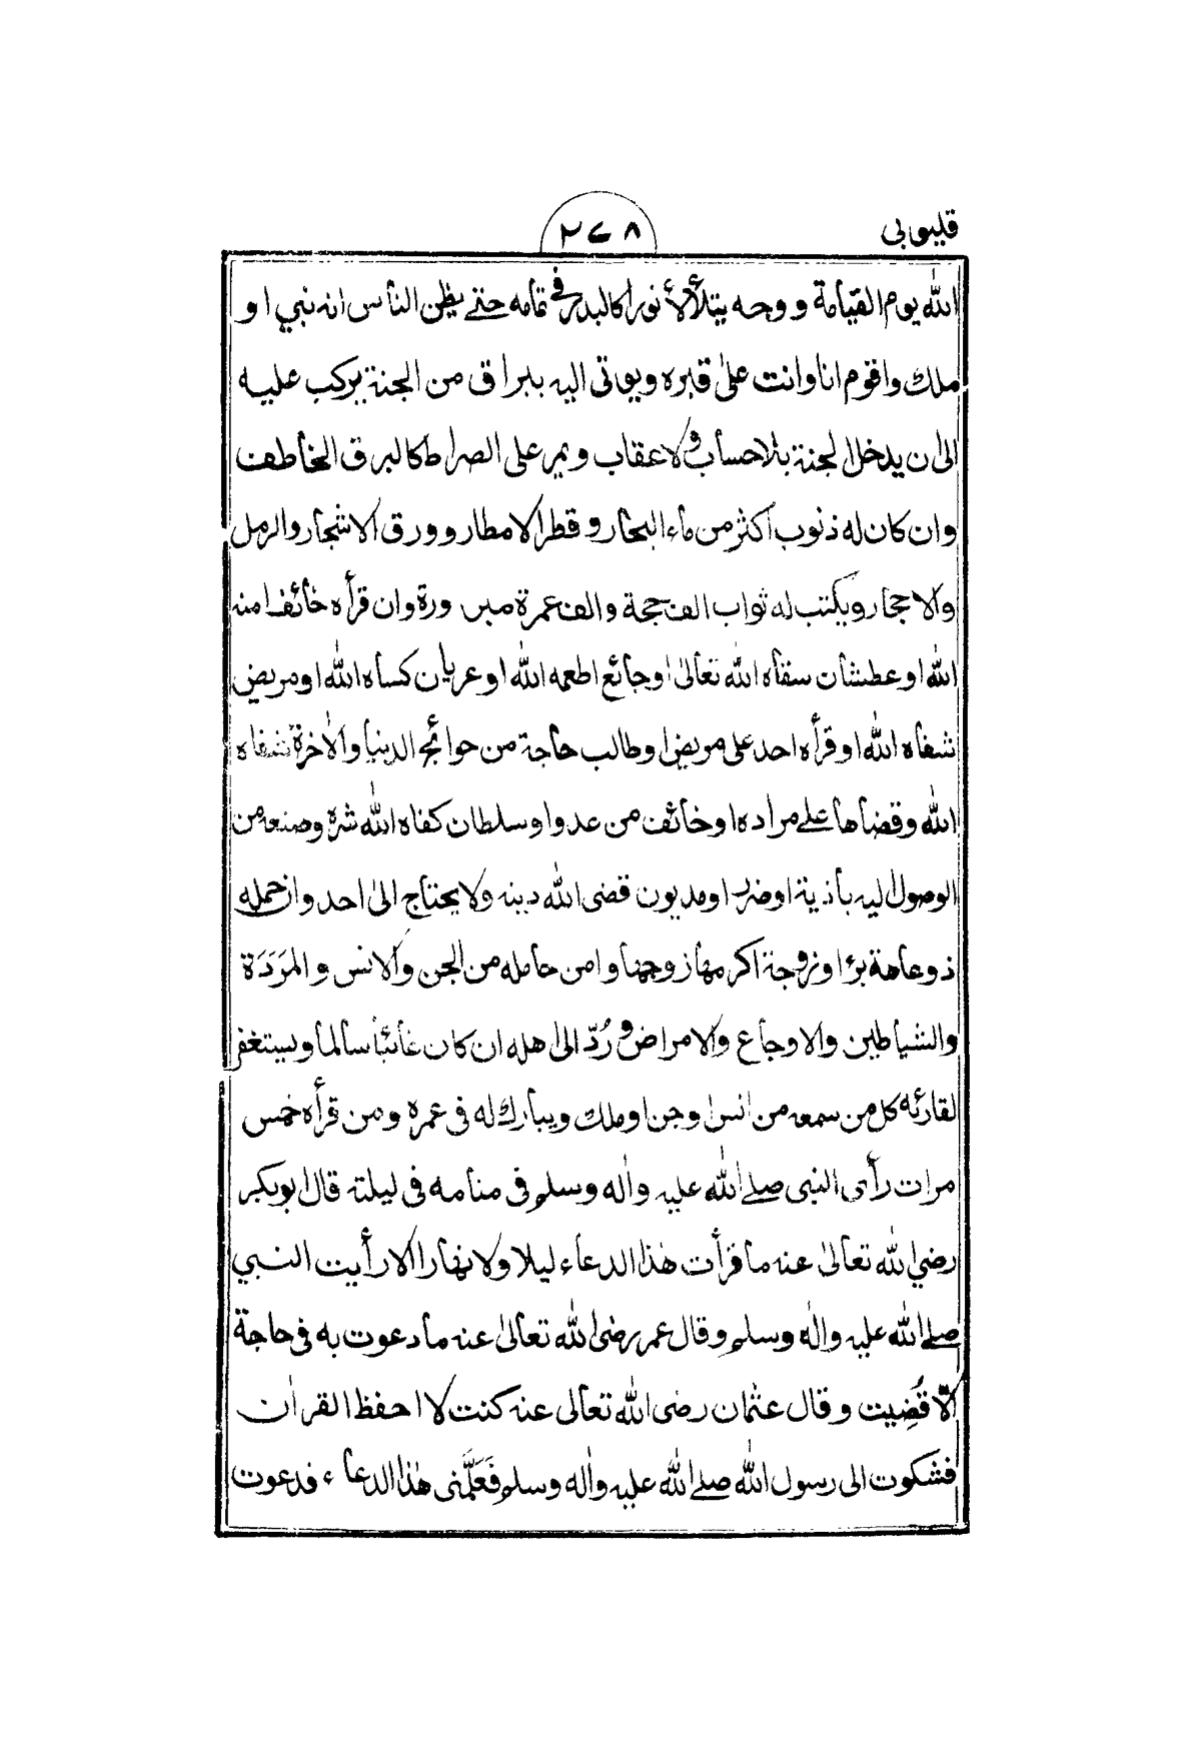 قليوبى
٢٧٨
الله يوم القيامة ووجه يتلألأ نورا كالبدر فى تمامه حتے يظن الناس انه نبي او
ملك واقوم انا وانت علىٰ قبره ويوتى اليه ببراق من الجنة يركب عليه
الى ان يدخل الجنة بلا حساب ولا عقاب ويمر على الصراط كالبرق الخاطف
وان كان له ذنوب اكثر من ماء البحار وقطر الامطار وورق الاشجار والرمل
والاحجار ويكتب له ثواب الف حجة والف عمرة مبرورة وان قرأه خائف امنه
الله او عطشان سقاه الله تعالىٰ او جائع اطعمه الله او عريان كساه الله او مريض
شفاه الله او قرأه احد على مريض او طالب حاجة من حوائج الدنيا والاٰخرة شفاه
الله وقضاها علے مراده او خائف من عدو او سلطان كفاه الله شرّه وصنعه من
الوصول اليه بأذية او ضرر او مديون قضى الله دينه ولا يحتاج الىٰ احد وان حمله
ذو عاهة برءا و زوجة اكرمها زوجها وامن حامله من الجن والانس والمَرَدَة
والشياطين والاوجاع والامراض ورُدّ الىٰ اهله ان كان غائبا سالما ويستغفر
لقارئه كل من سمعه من انس او جن او ملك ويبارك له فى عمره ومن قرأه خمس
مرات رأى النبى صلے الله عليه واٰله وسلم فى منامه فى ليلته قال ابو بكر
رضي الله تعالىٰ عنه ما قرأت هٰذا الدعاء ليلا ولا نهارا الا رأيت النبي
صلے الله عليه واٰله وسلم وقال عمر رضى الله تعالىٰ عنه ما دعوت به فى حاجة
الّا قُضِيت وقال عثمان رضى الله تعالى عنه كنت لا احفظ القراٰن
فشكوت الى رسول الله صلے الله عليه واٰله وسلم فَعَلَّمَنى هٰذا الدعاء فدعوت